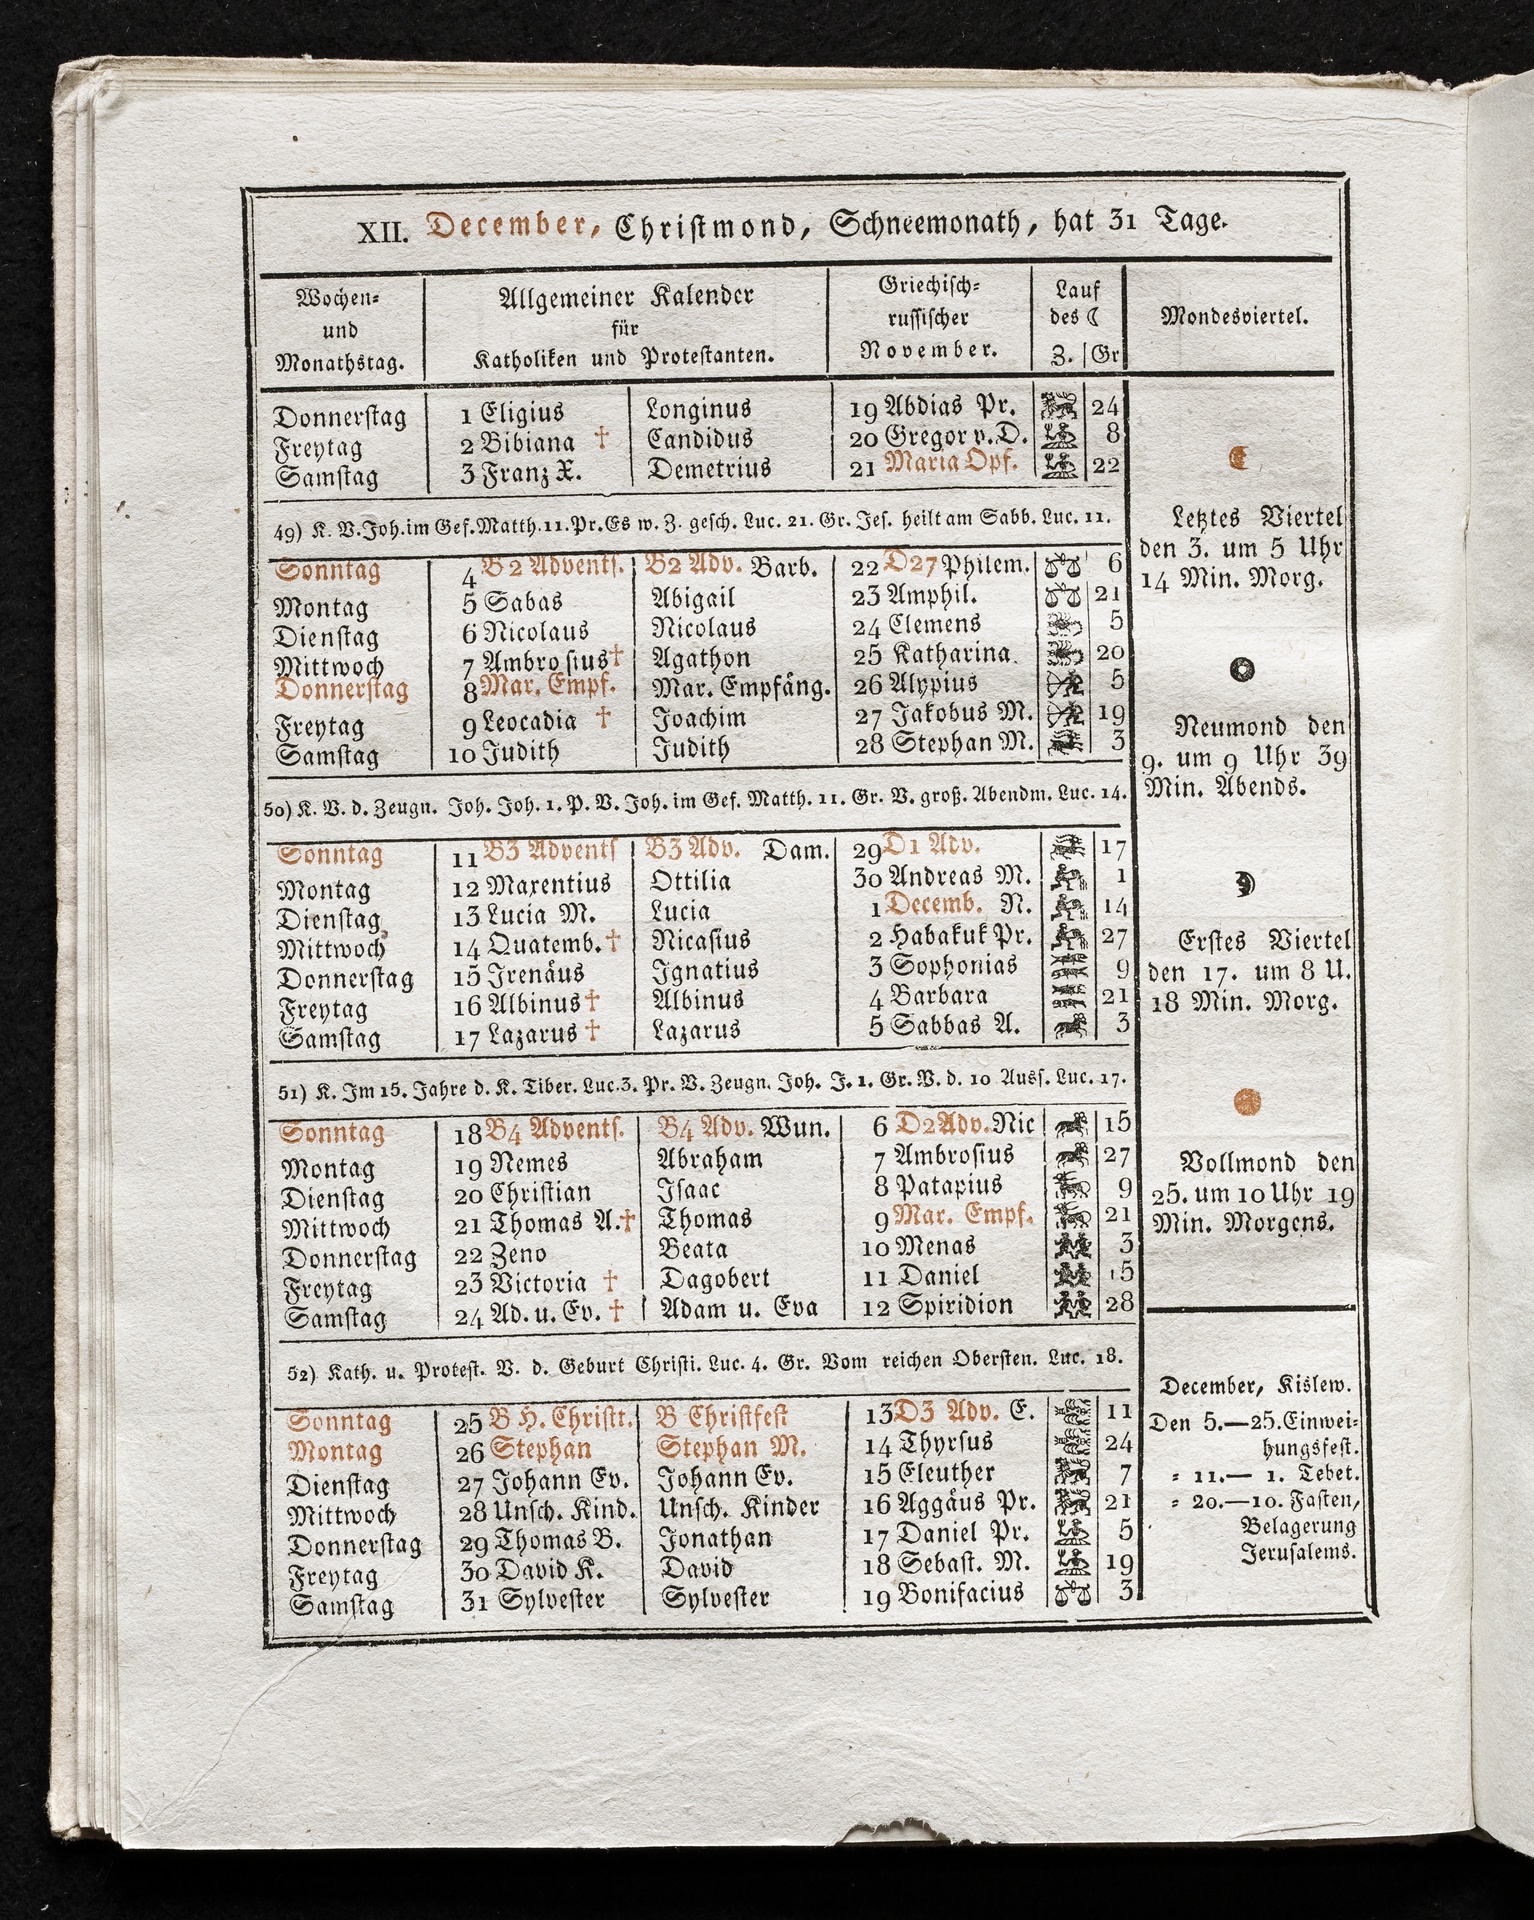 XII. December, Christmond, Schneemonath, hat 31 Tage.
Wochen- und Monathstag.
Allgemeiner Kalender für Katholiken und Protestanten.
Griechisch-russischer November.
Lauf des ☾
Z. Gr
Mondesviertel.
Donnerstag 1 Eligius Longinus 19 Abdias Pr. 24
Freytag 2 Bibiana † Candidus 20 Gregor v. D. 8
Samstag 3 Franz X. Demetrius 21 Maria Opf. 22
49) K. V. Joh. im Gef. Matth. 11. Pr. Es w. Z. gesch. Luc. 21. Gr. Jes. heilt am Sabb. Luc. 11.
Sonntag 4 B 2 Advents. B2 Adv. Barb. 22 D27 Philem. 6
Montag 5 Sabas Abigail 23 Amphil. 21
Dienstag 6 Nicolaus Nicolaus 24 Clemens 5
Mittwoch 7 Ambrosius † Agathon 25 Katharina. 20
Donnerstag 8 Mar. Empf. Mar. Empfäng. 26 Alypius 5
Freytag 9 Leocadia † Joachim 27 Jakobus M. 19
Samstag 10 Judith Judith 28 Stephan M. 3
50) K. V. d. Zeugn. Joh. Joh. 1. P. V. Joh. im Gef. Matth. 11. Gr. V. groß. Abendm. Luc. 14.
Sonntag 11 B3 Advents B3 Adv. Dam. 29 D1 Adv. 17
Montag 12 Maxentius Ottilia 30 Andreas M. 1
Dienstag 13 Lucia M. Lucia 1 Decemb. N. 14
Mittwoch 14 Quatemb. † Nicasius 2 Habakuk Pr. 27
Donnerstag 15 Irenäus Ignatius 3 Sophonias 9
Freytag 16 Albinus † Albinus 4 Barbara 21
Samstag 17 Lazarus † Lazarus 5 Sabbas A. 3
51) K. Im 15. Jahre d. K. Tiber. Luc. 3. Pr. V. Zeugn. Joh. J. 1. Gr. V. d. 10 Auss. Luc. 17.
Sonntag 18 B4 Advents. B4 Adv. Wun. 6 D2 Adv. Nic 15
Montag 19 Nemes Abraham 7 Ambrosius 27
Dienstag 20 Christian Isaac 8 Patapius 9
Mittwoch 21 Thomas A. † Thomas 9 Mar. Empf. 21
Donnerstag 22 Zeno Beata 10 Menas 3
Freytag 23 Victoria † Dagobert 11 Daniel 15
Samstag 24 Ad. u. Ev. † Adam u. Eva 12 Spiridion 28
52) Kath. u. Protest. V. d. Geburt Christi. Luc. 4. Gr. Vom reichen Obersten. Luc. 18.
Sonntag 25 B H. Christt. B Christfest 13 D3 Adv. E. 11
Montag 26 Stephan Stephan M. 14 Thyrsus 24
Dienstag 27 Johann Ev. Johann Ev. 15 Eleuther 7
Mittwoch 28 Unsch. Kind. Unsch. Kinder 16 Aggäus Pr. 21
Donnerstag 29 Thomas B. Jonathan 17 Daniel Pr. 5
Freytag 30 David K. David 18 Sebast. M. 19
Samstag 31 Sylvester Sylvester 19 Bonifacius 3
Letztes Viertel
den 3. um 5 Uhr
14 Min. Morg.
Neumond den
9. um 9 Uhr 39
Min. Abends.
Erstes Viertel
den 17. um 8 U.
18 Min. Morg.
Vollmond den
25. um 10 Uhr 19
Min. Morgens.
December, Kislew.
Den 5.—25. Einwei-
hungsfest.
= 11.— 1. Tebet.
= 20.—10. Fasten,
Belagerung
Jerusalems.